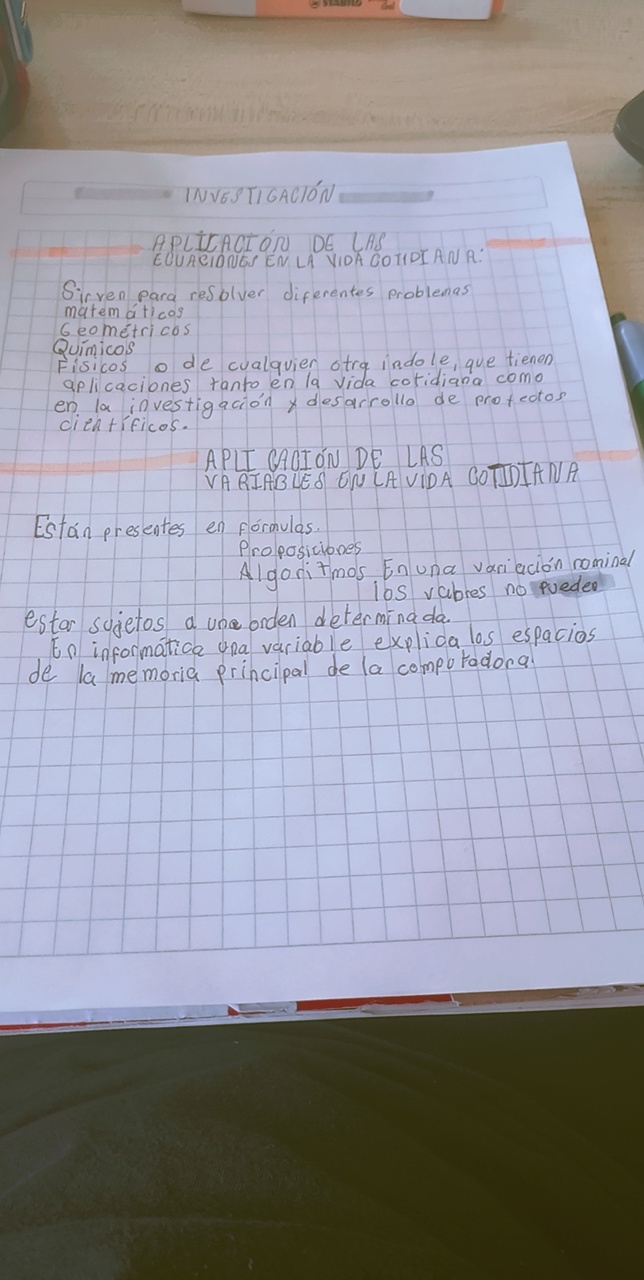 STABILO
INVESTIGACIÓN
APLICACIÓN DE LAS
ECUACIONES EN LA VIDA COTIDIANA:
Sirven para resolver diferentes problemas
matemáticos
Geométricos
Químicos
Físicos o de cualquier otra indole, que tienen
aplicaciones tanto en la vida cotidiana como
en la investigación y desarrollo de proyectos
científicos.
APLICACIÓN DE LAS
VARIABLES EN LA VIDA COTIDIANA
Están presentes en fórmulas.
Proposiciones
Algoritmos En una variación nominal
los valores no pueden
estar sujetos a una orden determinada.
En informática una variable explica los espacios
de la memoria principal de la computadora.